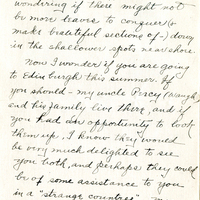 wondering if there might not
be more leaves to conquer (&
make beautiful sections of-) down
in the shallower spots near shore.
Now I wonder if you are going
to Edinburgh this summer. If
you should - my uncle Percy (Waugh)
and his family live there, and if
you had an opportunity to look
them up, I know they would
be very much delighted to see
you both, and perhaps they could
be of some assistance to you
in a "strange country".